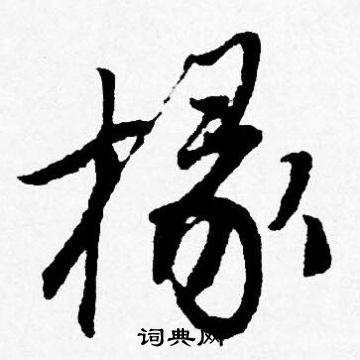 椽
词典网